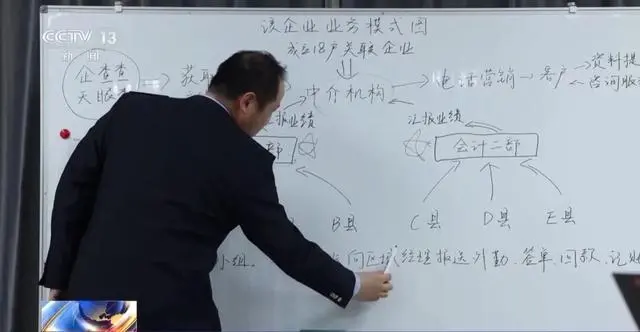 CCTV 13
新闻
该企业业务模式图
成立18户关联企业
企查查
天眼
获取
中介机构
电话营销
客户
资料提
咨询服
汇报业绩
汇报业绩
部
会计二部
B县
C县
D县
E县
小组.
向区域经理报送外勤、签单、回款、记账